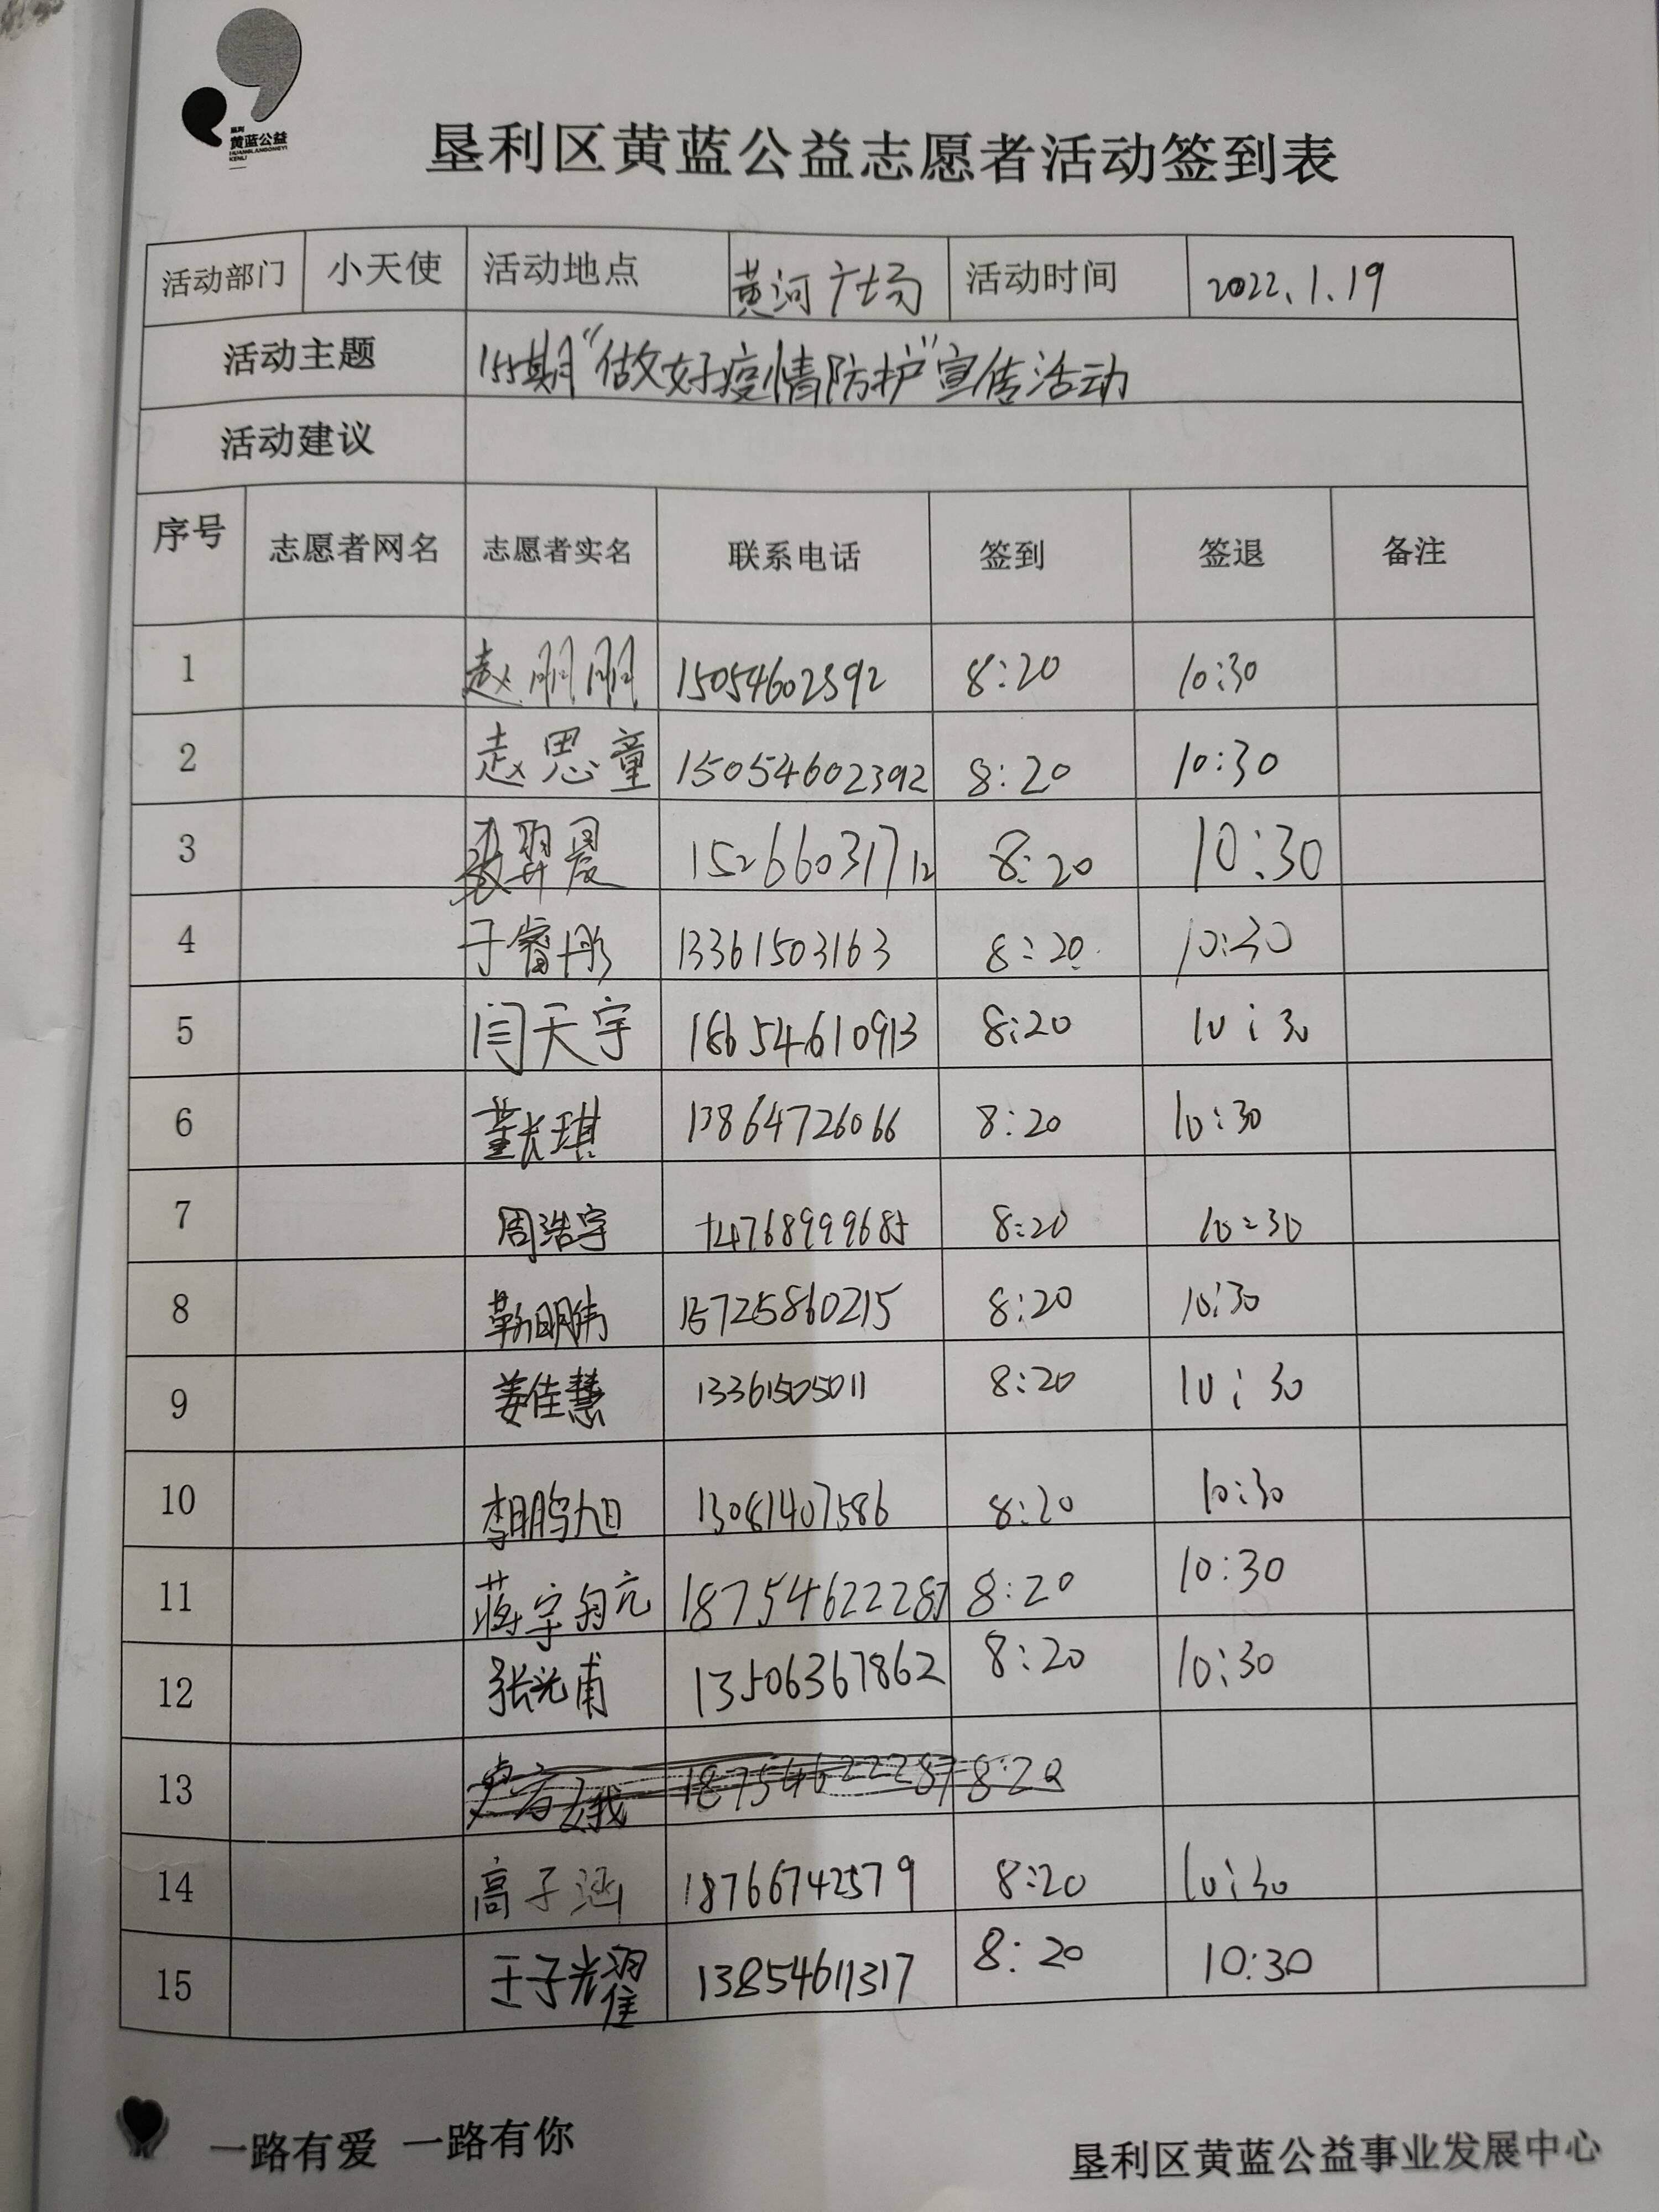 垦利
黄蓝公益
HUANGLANGONGYI
KENLI
垦利区黄蓝公益志愿者活动签到表
活动部门 小天使 活动地点 黄河广场 活动时间 2022.1.19
活动主题 155期“做好疫情防护”宣传活动
活动建议
序号 志愿者网名 志愿者实名 联系电话 签到 签退 备注
1 赵朋朋 15054602392 8:20 10:30
2 赵思童 15054602392 8:20 10:30
3 羿晨 15266031712 8:20 10:30
4 于睿彤 13361503163 8:20 10:30
5 闫天宇 18654610913 8:20 10:30
6 董长琪 13864726066 8:20 10:30
7 周浩宇 14768999685 8:20 10:30
8 靳明伟 15725860215 8:20 10:30
9 姜佳慧 13361505011 8:20 10:30
10 李鹏旭 13081407586 8:20 10:30
11 蒋宇 18754622287 8:20 10:30
12 张光甫 13506367862 8:20 10:30
13 18754622287 8:20
14 高子涵 18766742579 8:20 10:30
15 王子耀 13854611317 8:20 10:30
一路有爱 一路有你
垦利区黄蓝公益事业发展中心